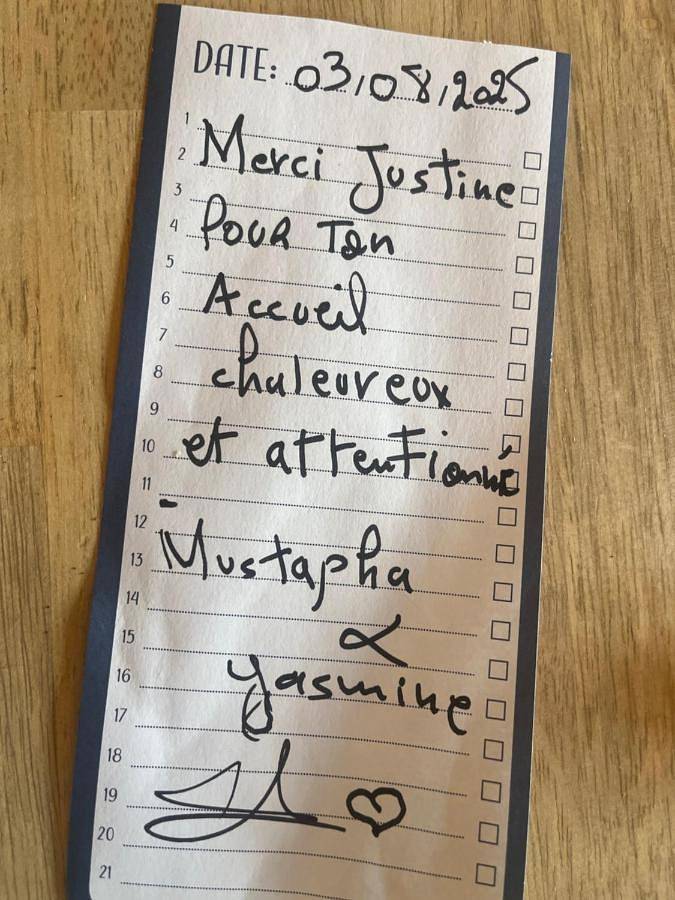 DATE: 03/08/2025
1
2 Merci Justine
3
4 Pour Ton
5
6 Accueil
7
8 chaleureux
9
10 et attentionné
11
12
13 Mustapha
14
15 &
16 Yasmine
17
18
19
20
21